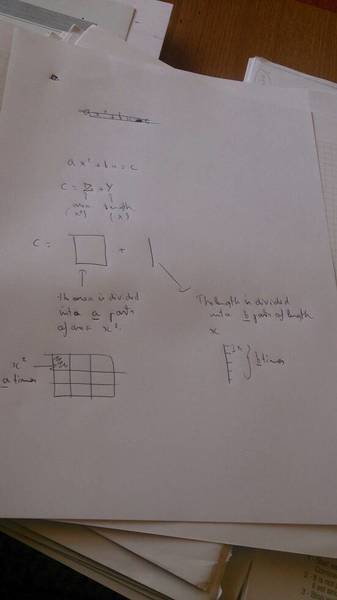 ax² + bx = c
ax² + bx = c
C = Σ + Y
area length
(x²) (x)
C = +
The area is divided
into a parts
of area x².
The length is divided
into b parts of length
x
x²
a times
x
b times